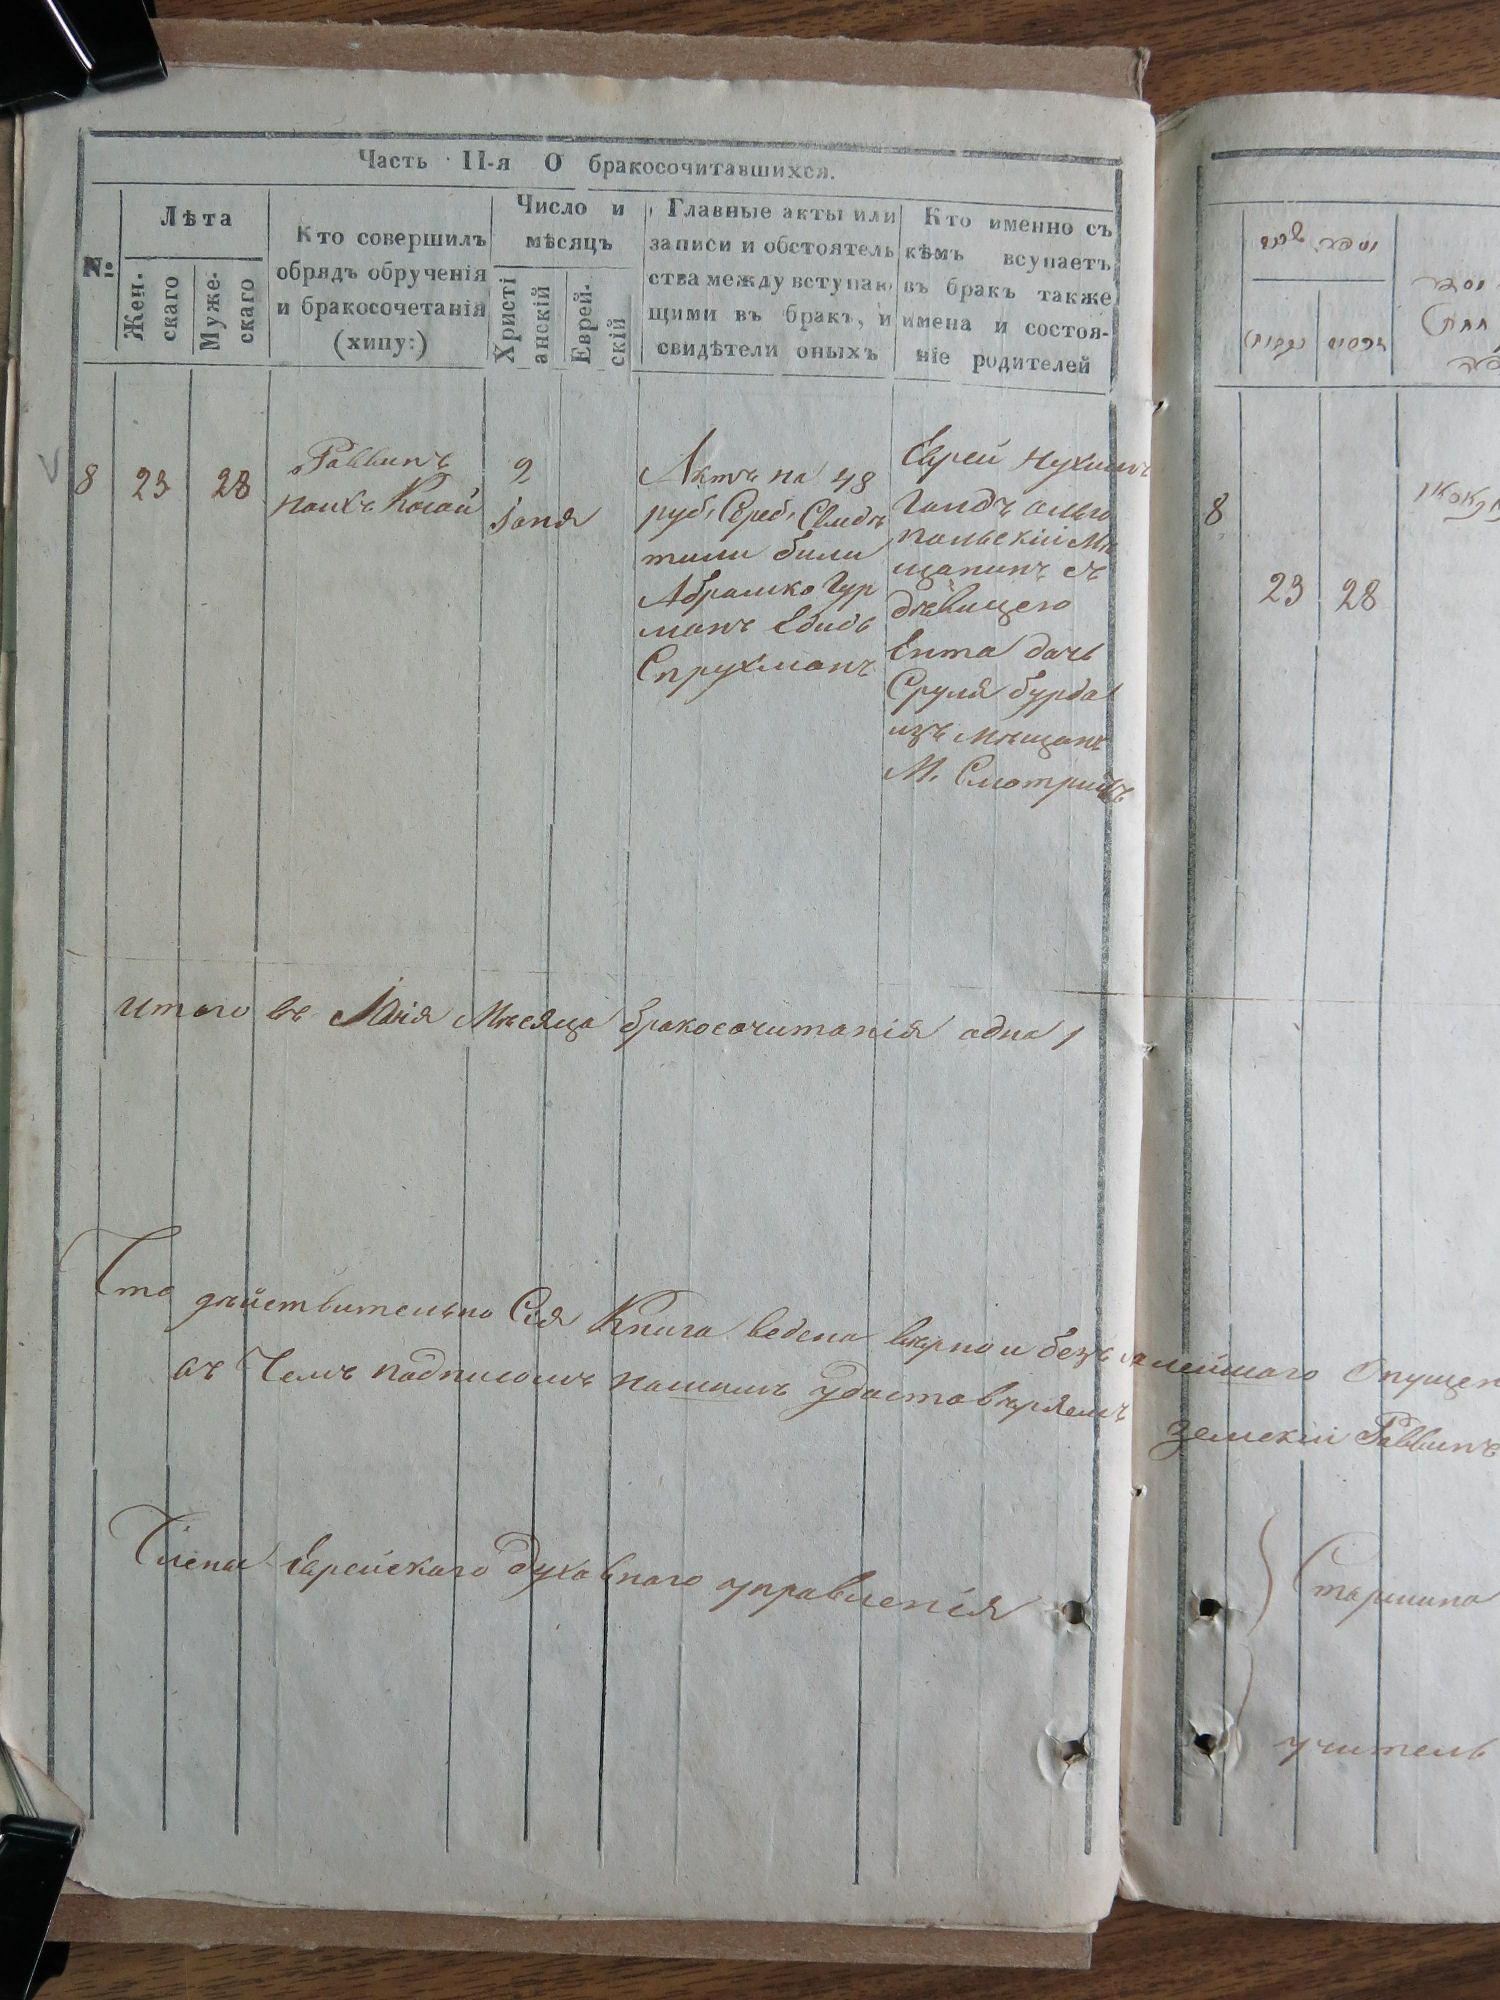 Часть II-я О бракосочитавшихся.
№
Лѣта
Жен-
скаго
Муже-
скаго
Кто совершилъ
обрядъ обрученія
и бракосочетанія
(хипу:)
Число и
мѣсяцъ
Христі
анскій
Еврей-
скій
Главные акты или
записи и обстоятель
ства между вступаю
щими въ бракъ, и
свидѣтели оныхъ
Кто именно съ
кѣмъ всупаетъ
въ бракъ также
имена и состоя-
ніе родителей
8
23
28
Раввинъ
2
Іюня
Актъ на 48
руб. Сереб. Свидѣ
тели били
Абрамко Гур
манъ
Спрухманъ
Еврей Нухимъ
Гандъ ольго
польскій мѣ
щанинъ съ
дѣвицею
Ента дочь
Сруля бурда
изъ мѣщанъ
М. Смотричъ
итого въ Іюня Мѣсяца бракосочитанія одна 1
Что дѣйствительно Сія Книга ведена вѣрно и безъ малейшаго Опущен
въ Чемъ подписомъ нашимъ удостовѣряемъ
земскій Раввинъ
Члены Еврейскаго Духовнаго управленія
Старшина
учитель
8
23
28